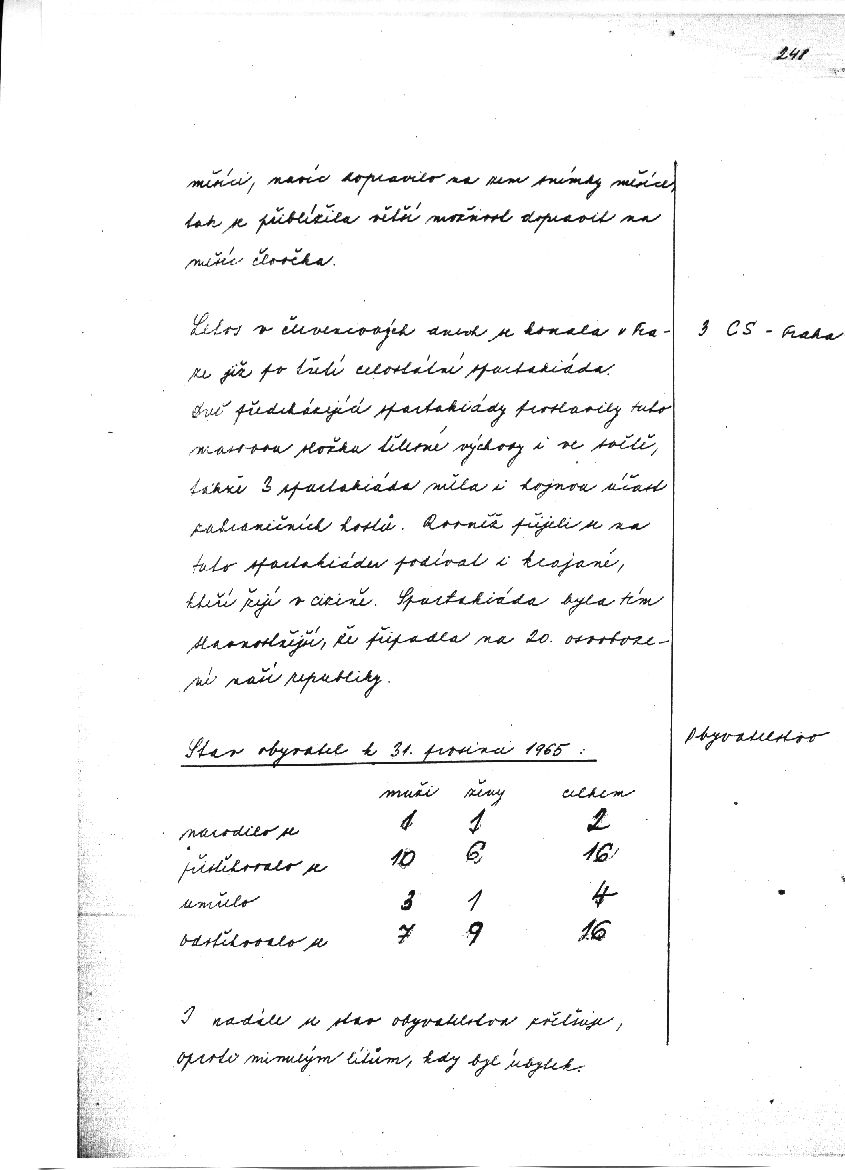 248
měsíci, navíc dopravilo na zem snímky měsíce,
tak se přiblížila větší možnost dopravit na
měsíc člověka.
Letos v červencových dnech se konala v Pra-
ze již po třetí celostátní spartakiáda.
3 CS - Praha
Dvě předcházející spartakiády proslavily tuto
masovou složku tělesné výchovy i ve světě,
takže 3 spartakiáda měla i hojnou účast
zahraničních hostů. Rovněž přijeli se na
tuto spartakiádu podívat i krajané,
kteří žijí v cizině. Spartakiáda byla tím
slavnostnější, že připadla na 20. osvoboze-
ní naší republiky.
Stav obyvatel k 31. prosinci 1965 :
Obyvatelstvo
muži ženy celkem
narodilo se 1 1 2
přistěhovalo se 10 6 16
umřelo 3 1 4
odstěhovalo se 7 9 16
I nadále se stav obyvatelstva zvětšuje,
oproti minulým létům, kdy byl úbytek.